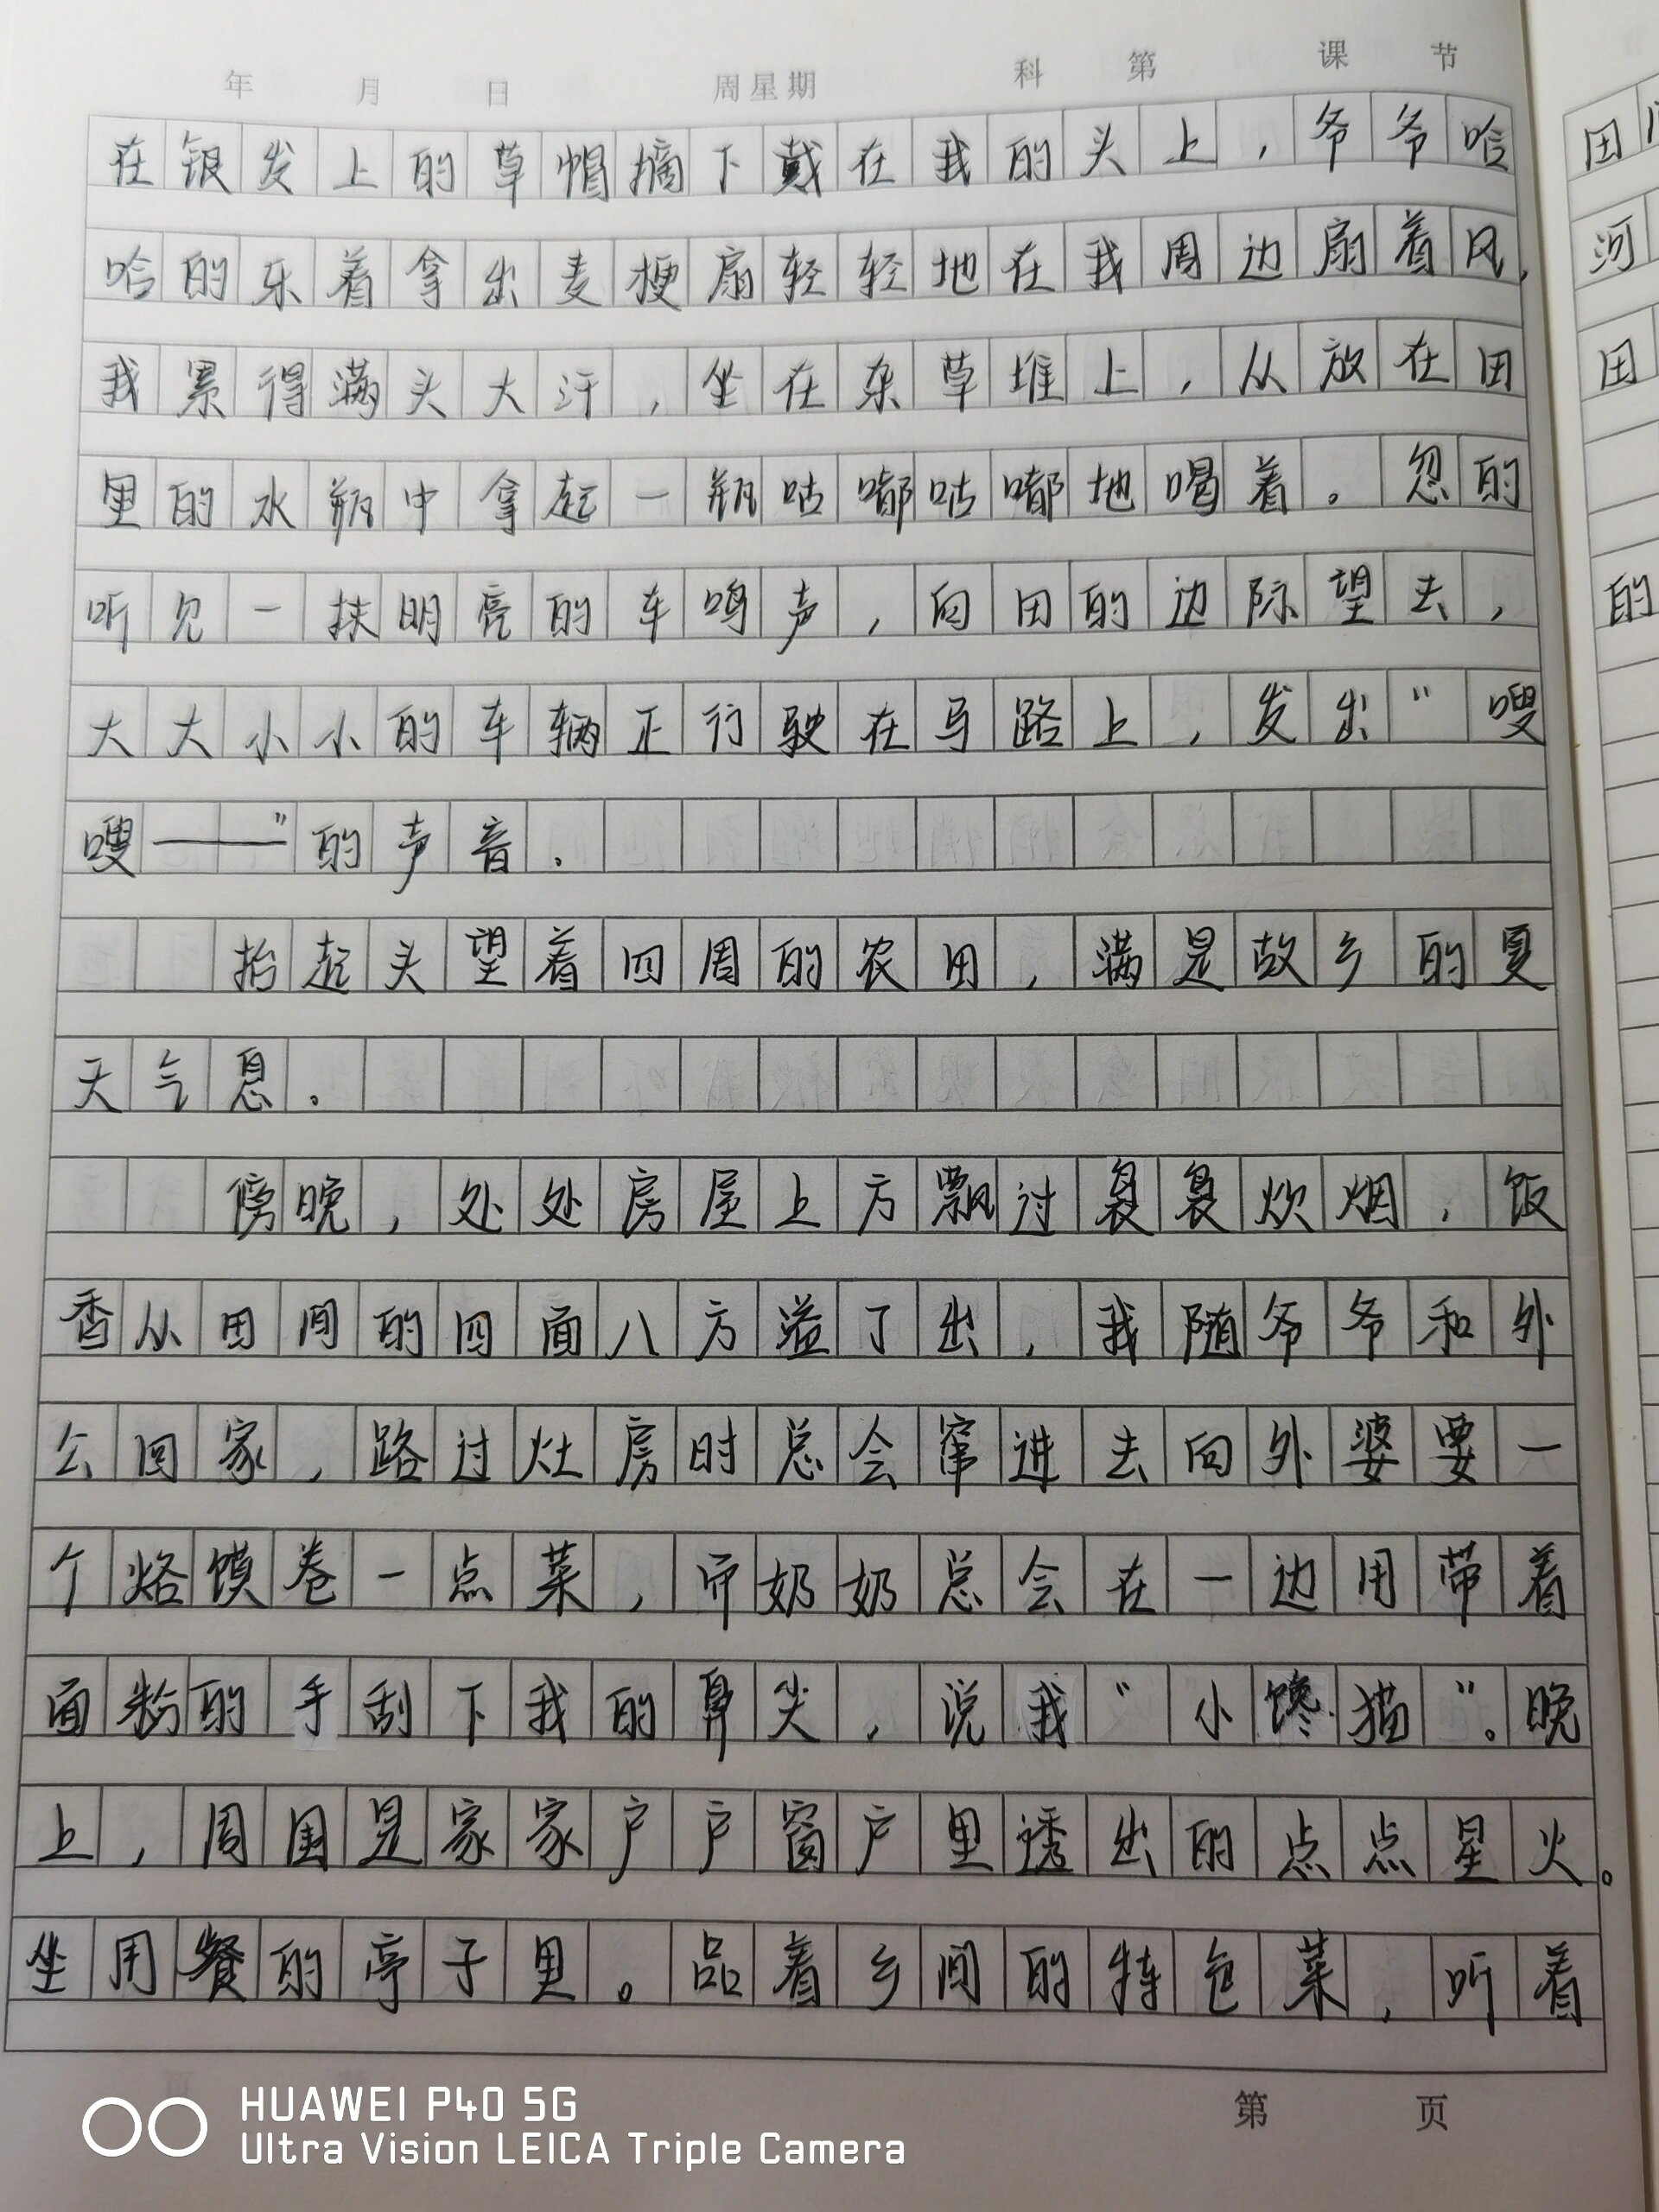 年 月 日 周星期 科 第 课 节
在银发上的草帽摘下戴在我的头上，爷爷哈
哈的乐着拿出麦梗扇轻轻地在我周边扇着风，
我累得满头大汗，坐在杂草堆上，从放在田
里的水瓶中拿起一瓶咕嘟咕嘟地喝着。忽的
听见一扶明亮的车鸣声，向田的边际望去，
大大小小的车辆正行驶在马路上，发出“嗖
嗖——”的声音.
抬起头望着四周的农田，满是故乡的夏
天气息.
傍晚，处处房屋上方飘过袅袅炊烟，饭
香从田间的四面八方溢了出，我随爷爷和外
公回家，路过灶房时总会窜进去向外婆要一
个烙馍卷一点菜，而奶奶总会在一边用带着
面粉的手刮下我的鼻尖，说我“小馋猫”。晚
上，周围是家家户户窗户里透出的点点星火。
坐用餐的亭子里。品着乡间的特色菜，听着
第 页
田
河
田
的
HUAWEI P40 5G
Ultra Vision LEICA Triple Camera